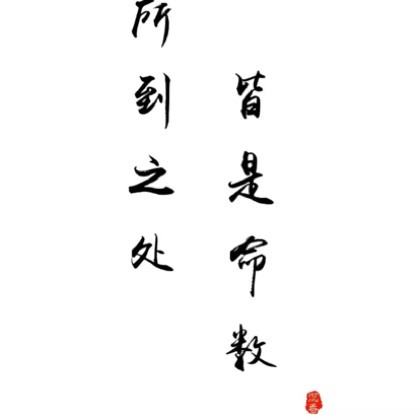 所到之处
皆是命数